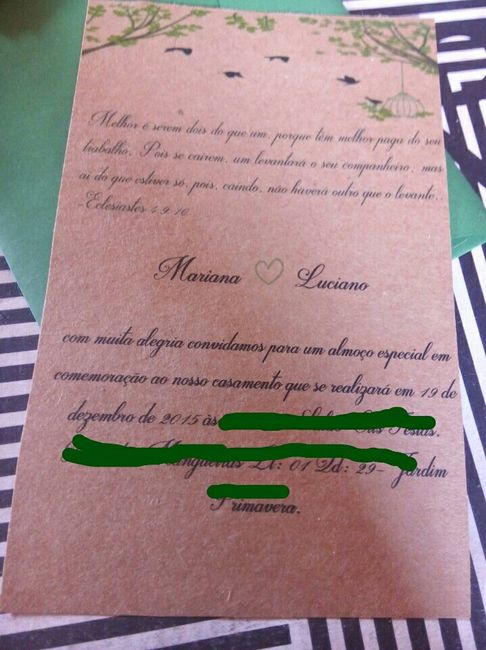 Melhor é serem dois do que um, porque têm melhor paga do seu
trabalho. Pois se caírem, um levantará o seu companheiro; mas
ai do que estiver só, pois, caindo, não haverá outro que o levante..
-Eclesiastes 4.9.10
Mariana Luciano
com muita alegria convidamos para um almoço especial em
comemoração ao nosso casamento que se realizará em 19 de
dezembro de 2015 às
Lt: 01 Qd: 29- Jardim
Primavera.